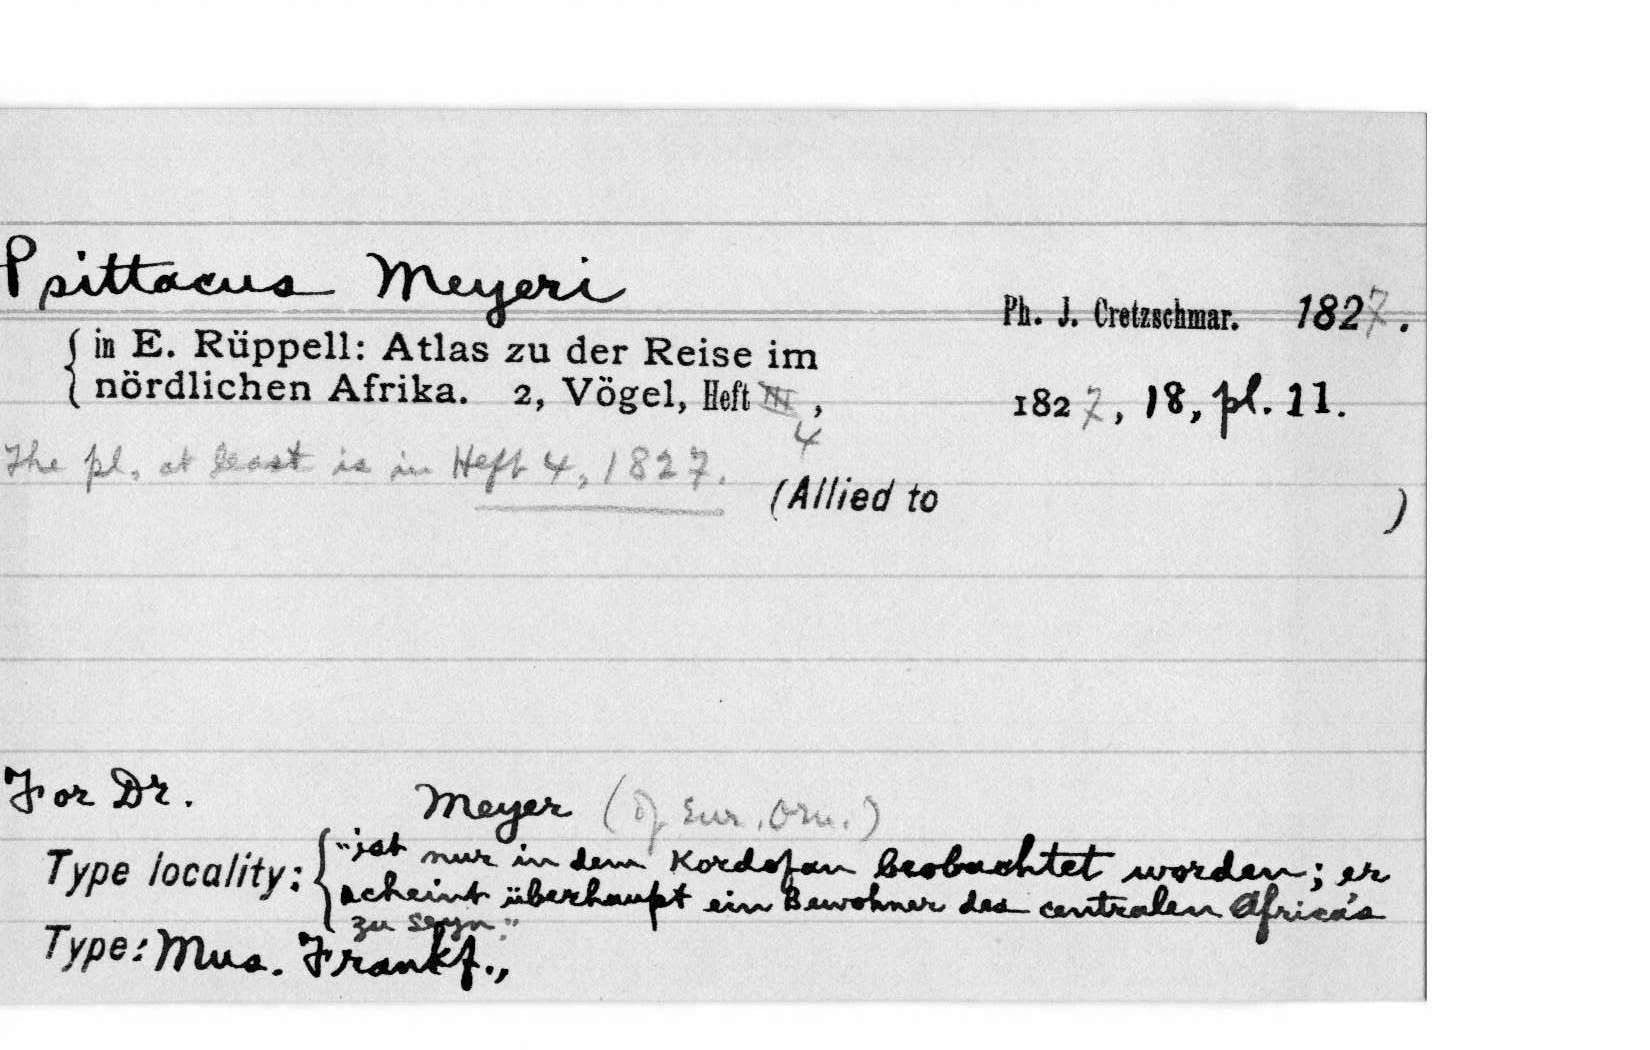 Psittacus Meyeri
Ph. J. Cretzschmar. 1827.
in E. Rüppell: Atlas zu der Reise im
nördlichen Afrika. 2, Vögel, Heft III, 1827, 18, pl. 11.
4
The pl. at least is in Heft 4, 1827.
(Allied to )
For Dr. Meyer (of Eur. Orn.)
Type locality: "ist nur in dem Kordofan beobachtet worden; er
scheint überhaupt ein Bewohner des centralen Africa's
zu seyn."
Type: Mus. Frankf.,